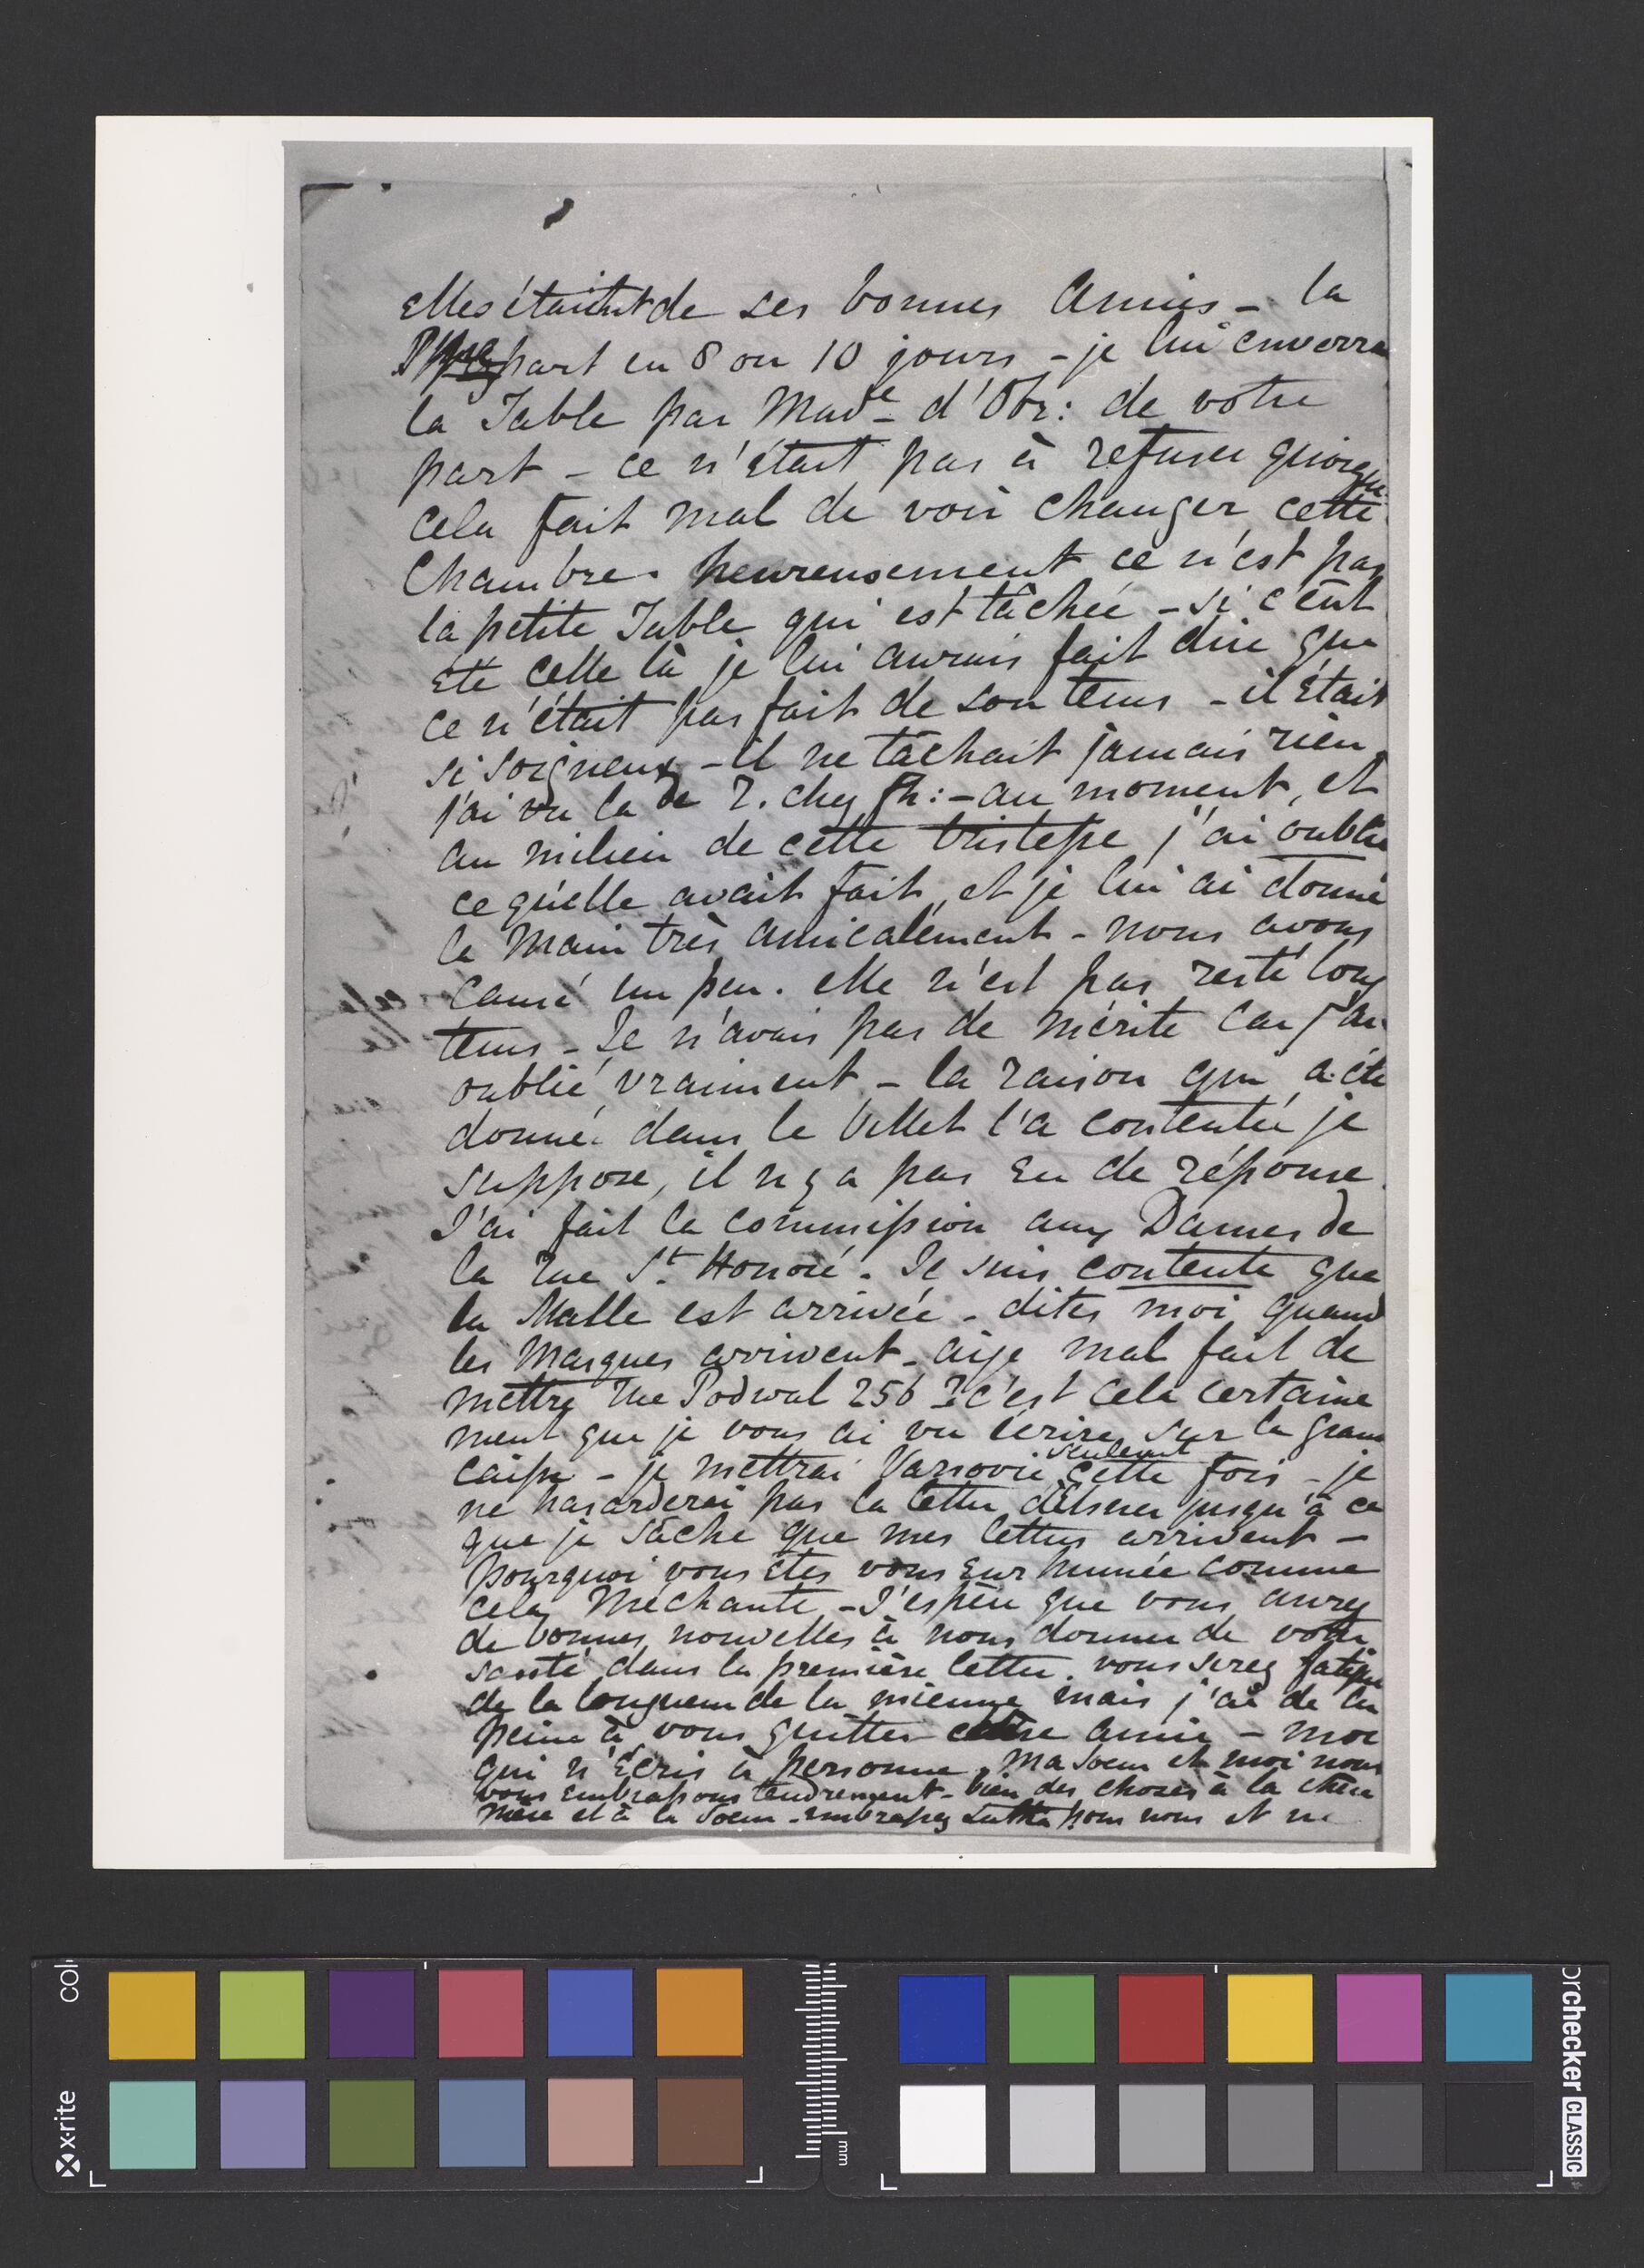 elles étaient de ses bonnes Amies - la
part en 8 ou 10 jours - je lui enverra
la Table par Made d'Obr: de votre
part - ce n'était pas à refuser quoique
cela fait mal de voir changer cette
Chambre. heureusement ce n'est pas
la petite Table qui est tâchée - si c'eut
été celle là je lui aurais fait dire que
ce n'était pas fait de son tems - il était
si soigneux - il ne tachait jamais rien.
j'ai vu la de R. chez Fr: - au moment, et
au milieu de cette tristesse j'ai oublié
ce qu'elle avait fait, et je lui ai donné
la Main très amicalement - nous avons
causé un peu. elle n'est pas resté long
tems - Je n'avais pas de mérite car j'ai
oublié vraiment - la raison qui a été
donnée dans le billet l'a contentée je
suppose, il n'y a pas eu de réponse.
J'ai fait la commission aux Dames de
la rue St. Honoré. Je suis contente que
la Malle est arrivée - dites moi quand
les Masques arrivent - ai je mal fait de
mettre rue Podwal 256 ? c'est cela certaine
ment que je vous ai vu écrire sur la grand
caisse - je mettrai Varsovie seulement cette fois - je
ne hasarderai pas la lettre d'Elsner jusqu'à ce
que je sache que mes lettres arrivent -
pourquoi vous êtes vous enrhumée comme
cela, Méchante - J'espère que vous aurez
de bonnes nouvelles à nous donner de votre
santé dans la première lettre. vous serez fatiguée
de la longueur de la mienne mais j'ai de la
peine à vous quitter chère amie - moi
qui n'écris à personne. Ma Soeur et moi nous
vous embrassons tendrement - bien des choses à la chère
mère et à la Soeur - embrassez pour nous et